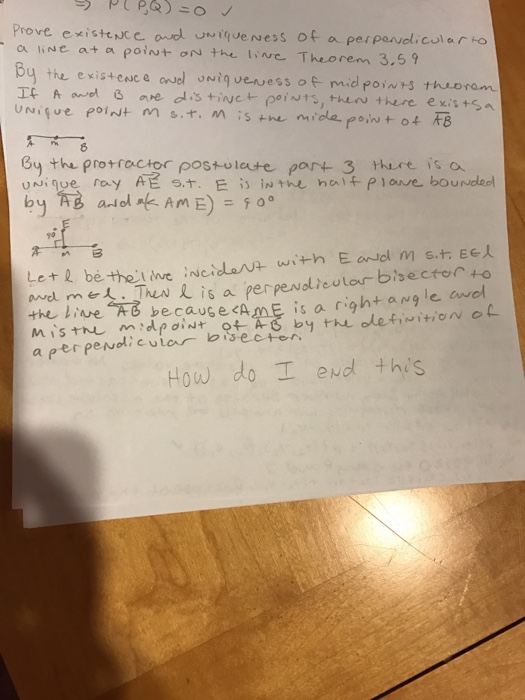 ⇒ P(P,Q) = 0 ✓
Prove existence and uniqueness of a perpendicular to
a line at a point on the line Theorem 3.59
By the existence and uniqueness of midpoints theorem
If A and B are distinct points, then there exists a
unique point M s.t. M is the mide point of AB
A m B
By the protractor postulate part 3 there is a
unique ray AE s.t. E is in the half plane bounded
by AB and m(∢ AME) = 90°
E
90°
A m B
Let l be the line incident with E and M s.t. E∈l
and m∈l. Then l is a perpendicular bisector to
the line AB because ∢AME is a right angle and
M is the midpoint of AB by the definition of
a perpendicular bisector.
How do I end this